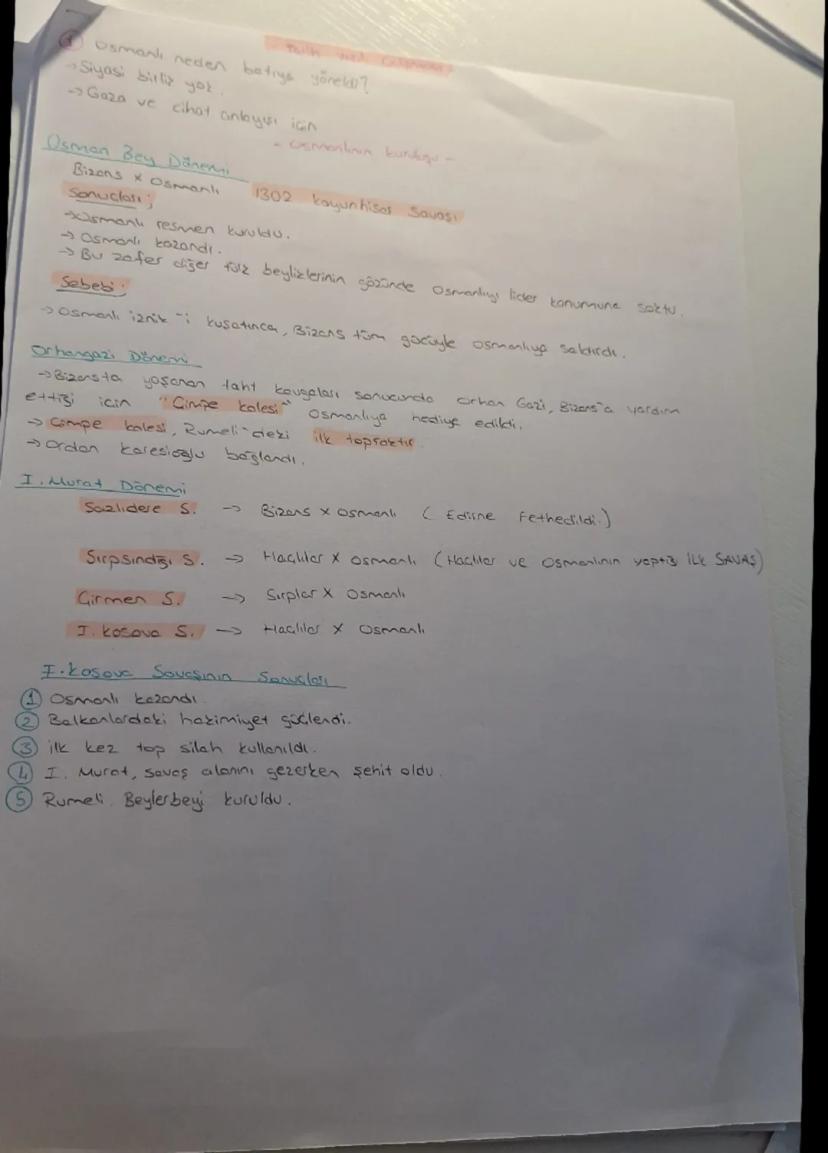 ① Osmanlı neden batıya yöneldi?
→ Siyasi birlik yok.
→ Gaza ve cihat anlayışı için
- Osmanlının kuruluşu -
Osman Bey Dönemi
Bizans x Osmanlı 1302 Koyunhisar Savaşı
Sonuçları;
→ Osmanlı resmen kuruldu.
→ Osmanlı kazandı.
→ Bu zafer diğer türk beyliklerinin gözünde Osmanlıyı lider konumuna soktu.
Sebebi:
→ Osmanlı iznik'i kuşatınca, Bizans tüm gücüyle Osmanlıya saldırdı.
Orhangazi Dönemi
→ Bizansta yaşanan taht kavgaları sonucunda Orhan Gazi, Bizans'a yardım
ettiği için "Çimpe kalesi" Osmanlıya hediye edildi.
→ Çimpe kalesi, Rumeli'deki ilk topraktır
→ Ordan karesioğlu bağlandı.
I. Murat Dönemi
Sazlıdere S. → Bizans x Osmanlı ( Edirne Fethedildi.)
Sırpsındığı S. → Haçlılar x Osmanlı (Haçlılar ve Osmanlının yaptığı İLK SAVAŞ)
Çirmen S. → Sırplar x Osmanlı
I. Kosova S. → Haçlılar x Osmanlı
I. Kosova Savaşının Sonuçları
① Osmanlı kazandı
② Balkanlardaki hakimiyet güçlendi.
③ ilk kez top silah kullanıldı.
④ I. Murat, savaş alanını gezerken şehit oldu.
⑤ Rumeli Beylerbeyi kuruldu.